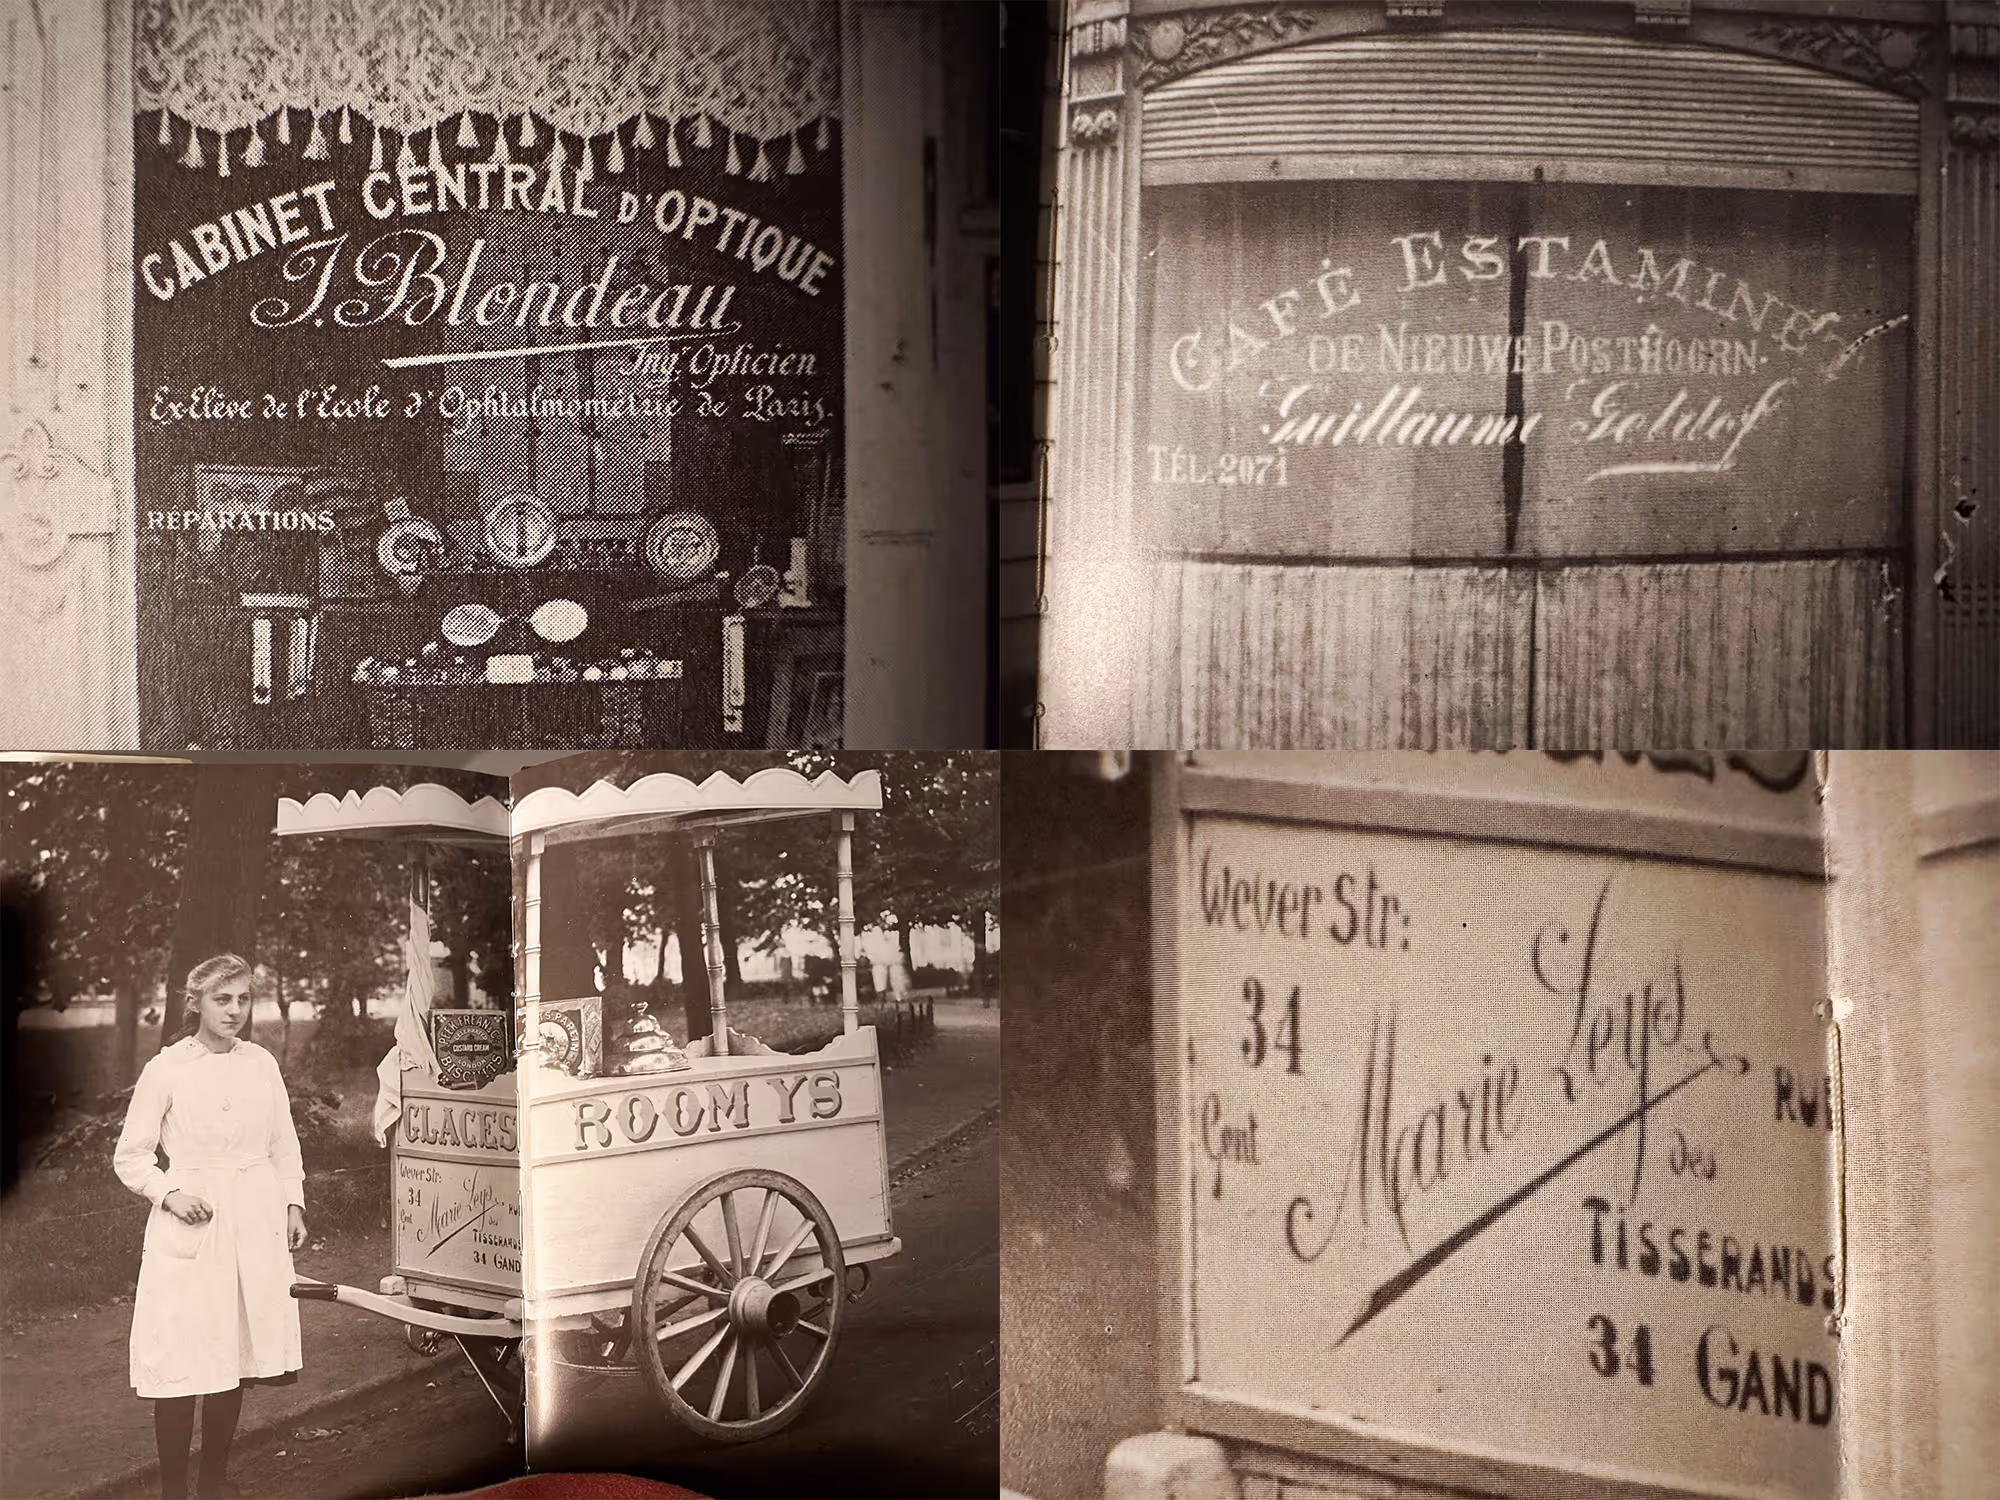 CABINET CENTRAL D'OPTIQUE
J. Blondeau
Ingr. Opticien
Ex-Elève de l'Ecole d'Ophtalmométrie de Paris.
RÉPARATIONS
CAFÉ ESTAMINET
DE NIEUWE POSTHOORN.
Guillaume
TÉL. 2071
PEEK FREAN & Co
CUSTARD CREAM
LONDON
BISCUITS
GLACES
ROOM YS
Wever Str:
34
Gent
Marie Leys
RUE
des
TISSERANDS
34 GAND
Wever Str:
34
Gent
Marie Leys
RUE
des
TISSERANDS
34 GAND